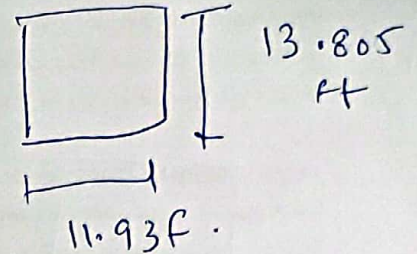 13.805
ft
11.93f.